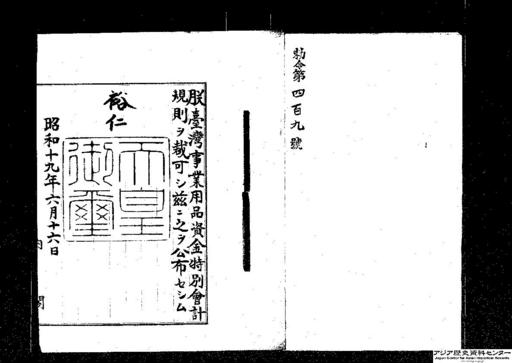 勅令第四百九號
朕臺灣事業用品資金特別會計
規則ヲ裁可シ茲ニ之ヲ公布セシム
裕仁
天皇
御璽
昭和十九年六月十六日
内閣
アジア歴史資料センター
Japan Center for Asian Historical Records